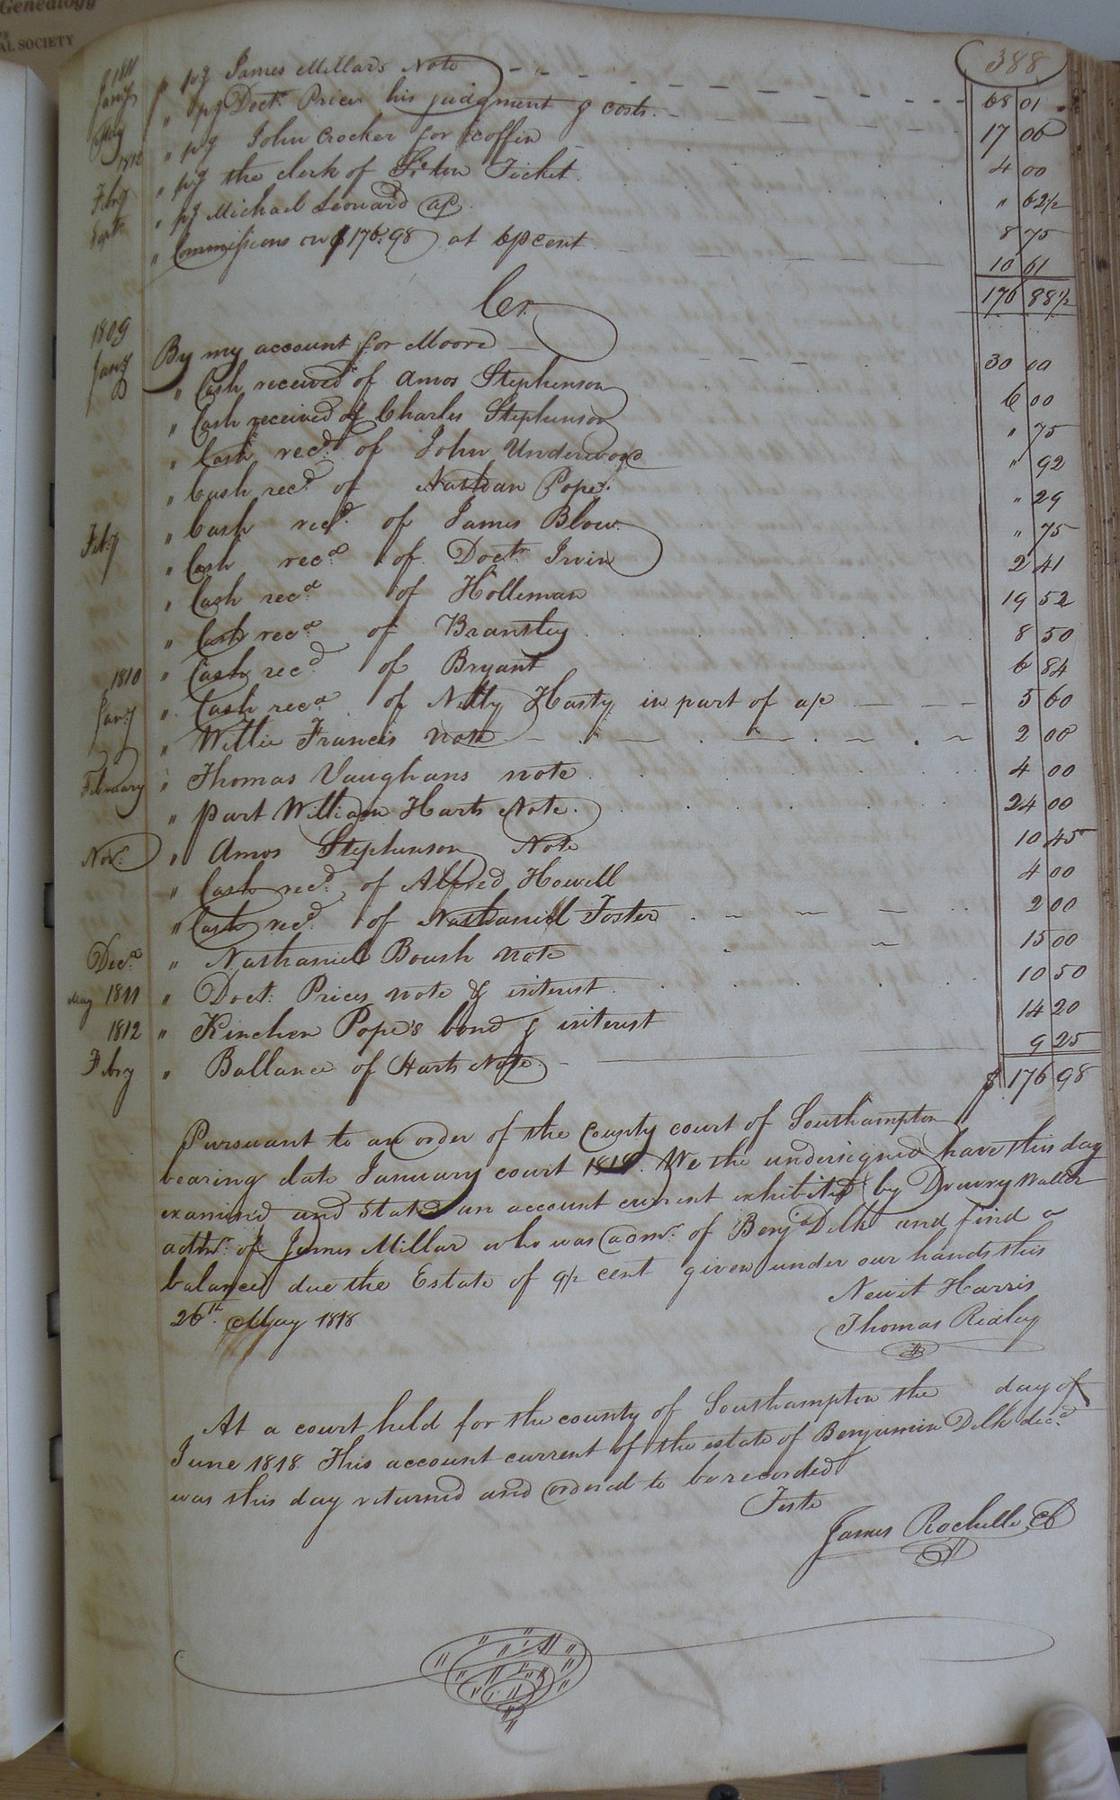 Genealogy
AL SOCIETY
388
1811
Jany " pd James Millars Note 68 01
Aug " pd Doctr Prices his judgment & costs 17 06
" pd John Crocker for coffin 4 00
1812
Feby " pd the clerk of Ticket " 62 1/2
Sept " pd Michael Leonard ap 8 75
" Commissions on $176.98 at 6 p cent 10 61
176 88 1/2
Cr.
1809
Jany By my account for Moore 30 00
" Cash received of Amos Stephenson 6 00
" Cash received of Charles Stephenson " 75
" Cash recd. of John Underwood " 92
" Cash recd of Nathan Pope. " 29
Feby " Cash recd. of James Blow. " 75
" Cash recd of Doctr Irvin 2 41
" Cash recd of Holleman 19 52
" Cash recd of Brantley 8 50
1810 " Cash recd of Bryant 6 84
Jany " Cash recd of Nelly Hasty in part of a/c 5 60
" Willie Francis note 2 00
February " Thomas Vaughans note 4 00
" part William Harts Note. 24 00
Nov. " Amos Stephenson Note 10 45
" Cash recd. of Alfred Howell 4 00
" Cash recd. of Nathaniel Foster 2 00
Decr " Nathaniel Boush note 15 00
May 1811 " Doct: Prices note & interest 10 50
1812 " Kinchen Pope's bond & interest 14 20
Feby " Ballance of Harts Note. 9 25
$ 176 98
Pursuant to an order of the County court of Southampton
bearing date January court 1818. We the undersigned have this day
examined and stated an account current exhibited by Drewry Waller
admr. of James Millar who was admr. of Benja Delk and find a
balance due the Estate of 9 1/2 cent given under our hands this
26th. May 1818
Newit Harris
Thomas Ridley
At a court held for the county of Southampton the day of
June 1818 This account current of the estate of Benjamin Delk decd
was this day returned and ordered to be recorded
Teste
James Rochelle, CC